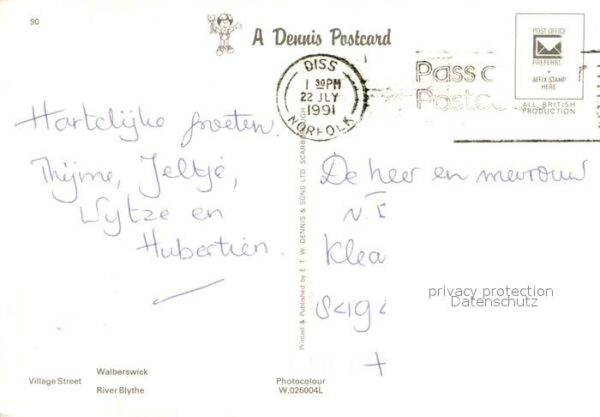 90
A Dennis Postcard
DISS
1 30PM
22 JLY
1991
NORFOLK
POST OFFICE
PREFERRED
AFFIX STAMP
HERE
ALL BRITISH
PRODUCTION
Hartelijke groeten.
Thijme, Jeltje,
Wytze en
Hubertien.
Printed & Published by E. T. W. DENNIS & SONS LTD. SCARBOROUGH
De heer en mevrouw
privacy protection
Datenschutz
Village Street
Walberswick
River Blythe
Photocolour
W.026004L